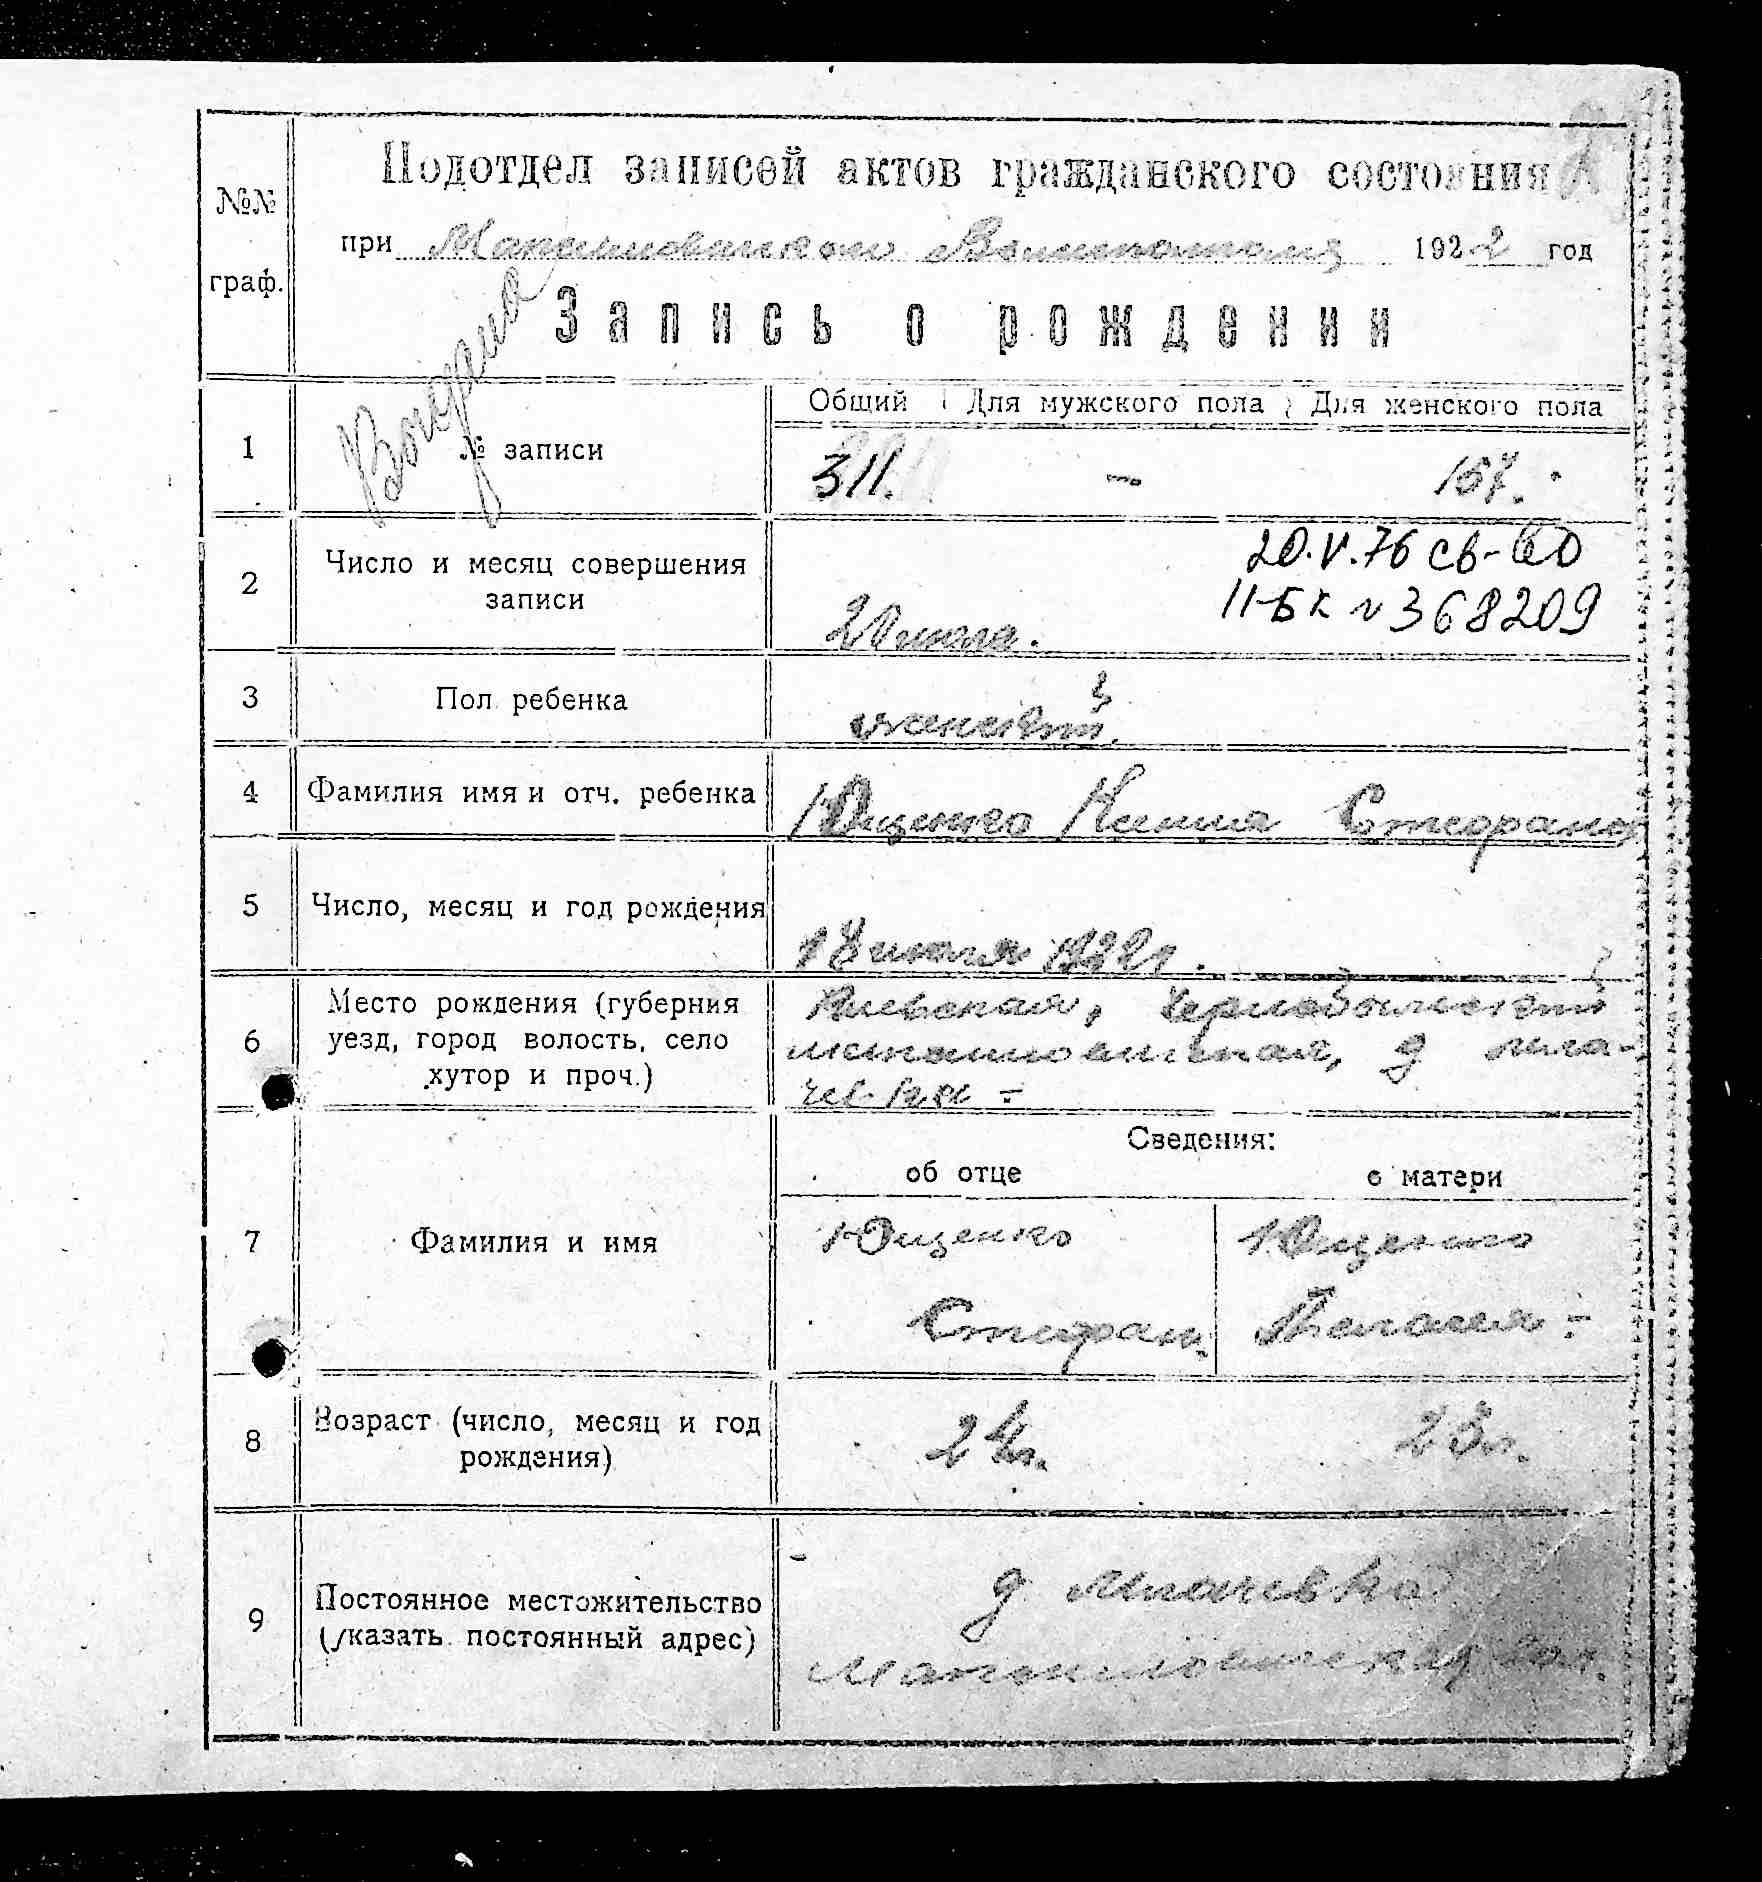 №№
граф.
Подотдел записей актов гражданского состояния
при Максимовичском Волисполкоме 1922 год
Запись о рождении
1
№ записи
Общий Для мужского пола Для женского пола
311. - 157.
2
Число и месяц совершения
записи
20.V.76 св-во
II-БК № 368209
20 июля.
3
Пол ребенка
женский.
4
Фамилия имя и отч. ребенка
Ющенко Ксения Стефанов
5
Число, месяц и год рождения
18 июля 1922 г.
6
Место рождения (губерния
уезд, город волость, село
хутор и проч.)
Киевская, Чернобыльский
д
Сведения:
об отце
о матери
7
Фамилия и имя
Ющенко
Стефан.
Ющенко
Пелагея -
8
Возраст (число, месяц и год
рождения)
24 г.
23 г.
9
Постоянное местожительство
(указать постоянный адрес)
д Млачевка
Максимовичская вол.